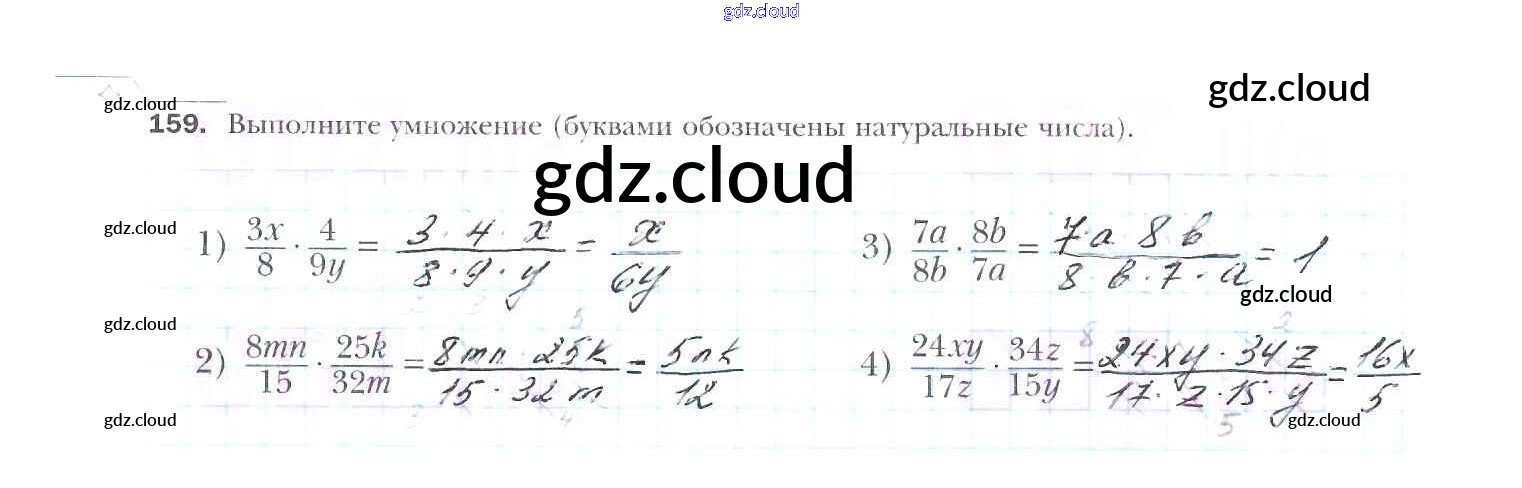 gdz.cloud
gdz.cloud
gdz.cloud
159. Выполните умножение (буквами обозначены натуральные числа).
gdz.cloud
gdz.cloud
1) 3x/8 · 4/9y = 3 · 4 · x / 8 · 9 · y = x/6y
3) 7a/8b · 8b/7a = 7 a 8 b / 8 b · 7 · a = 1
gdz.cloud
gdz.cloud
2) 8mn/15 · 25k/32m = 8mn · 25k / 15 · 32 m = 5nk/12
4) 24xy/17z · 34z/15y = 24xy · 34z / 17 · z · 15 · y = 16x/5
gdz.cloud
gdz.cloud